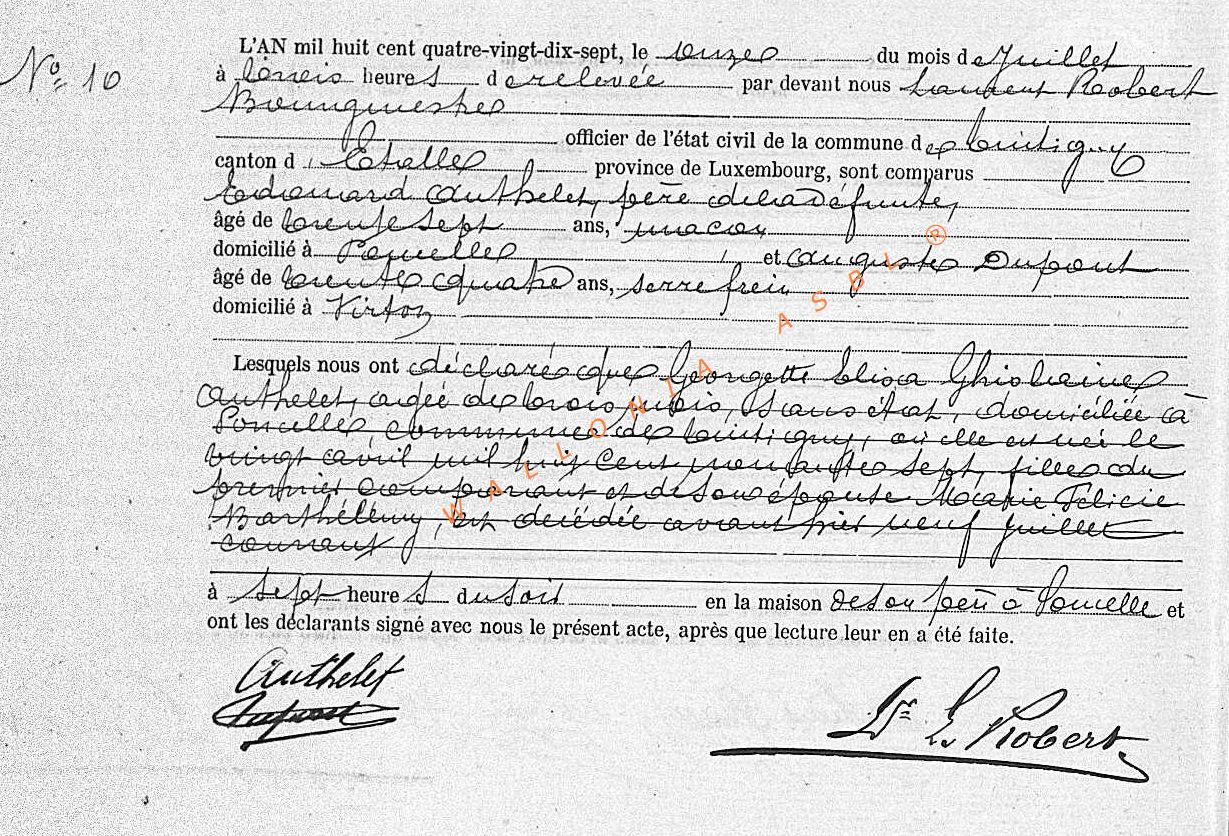 No 10
L'AN mil huit cent quatre-vingt-dix-sept, le onze du mois de Juillet
à trois heures de relevée par devant nous Laurent Robert
Bourgmestre
officier de l'état civil de la commune de Tintigny
canton d'Etalle province de Luxembourg, sont comparus
Edouard Authelet, père de la Défunte,
âgé de trente sept ans, maçon
domicilié à Poncelle et Auguste Dupont
âgé de trente quatre ans, serre frein
domicilié à Virton
Lesquels nous ont déclaré que Georgette Elisa Ghislaine
Authelet, agée de trois mois, sans état, domiciliée à
Poncelle, commune de Tintigny, où elle est née le
vingt avril mil huit cent nonante sept, fille du
premier comparant et de son épouse Marie Félicie
Barthélemy, est decédée avant hier neuf juillet
courant
à sept heures du soir en la maison de son père à Poncelle et
ont les déclarants signé avec nous le présent acte, après que lecture leur en a été faite.
Authelet
Dupont
Dr L. Robert
WALLONIA ASBL ®